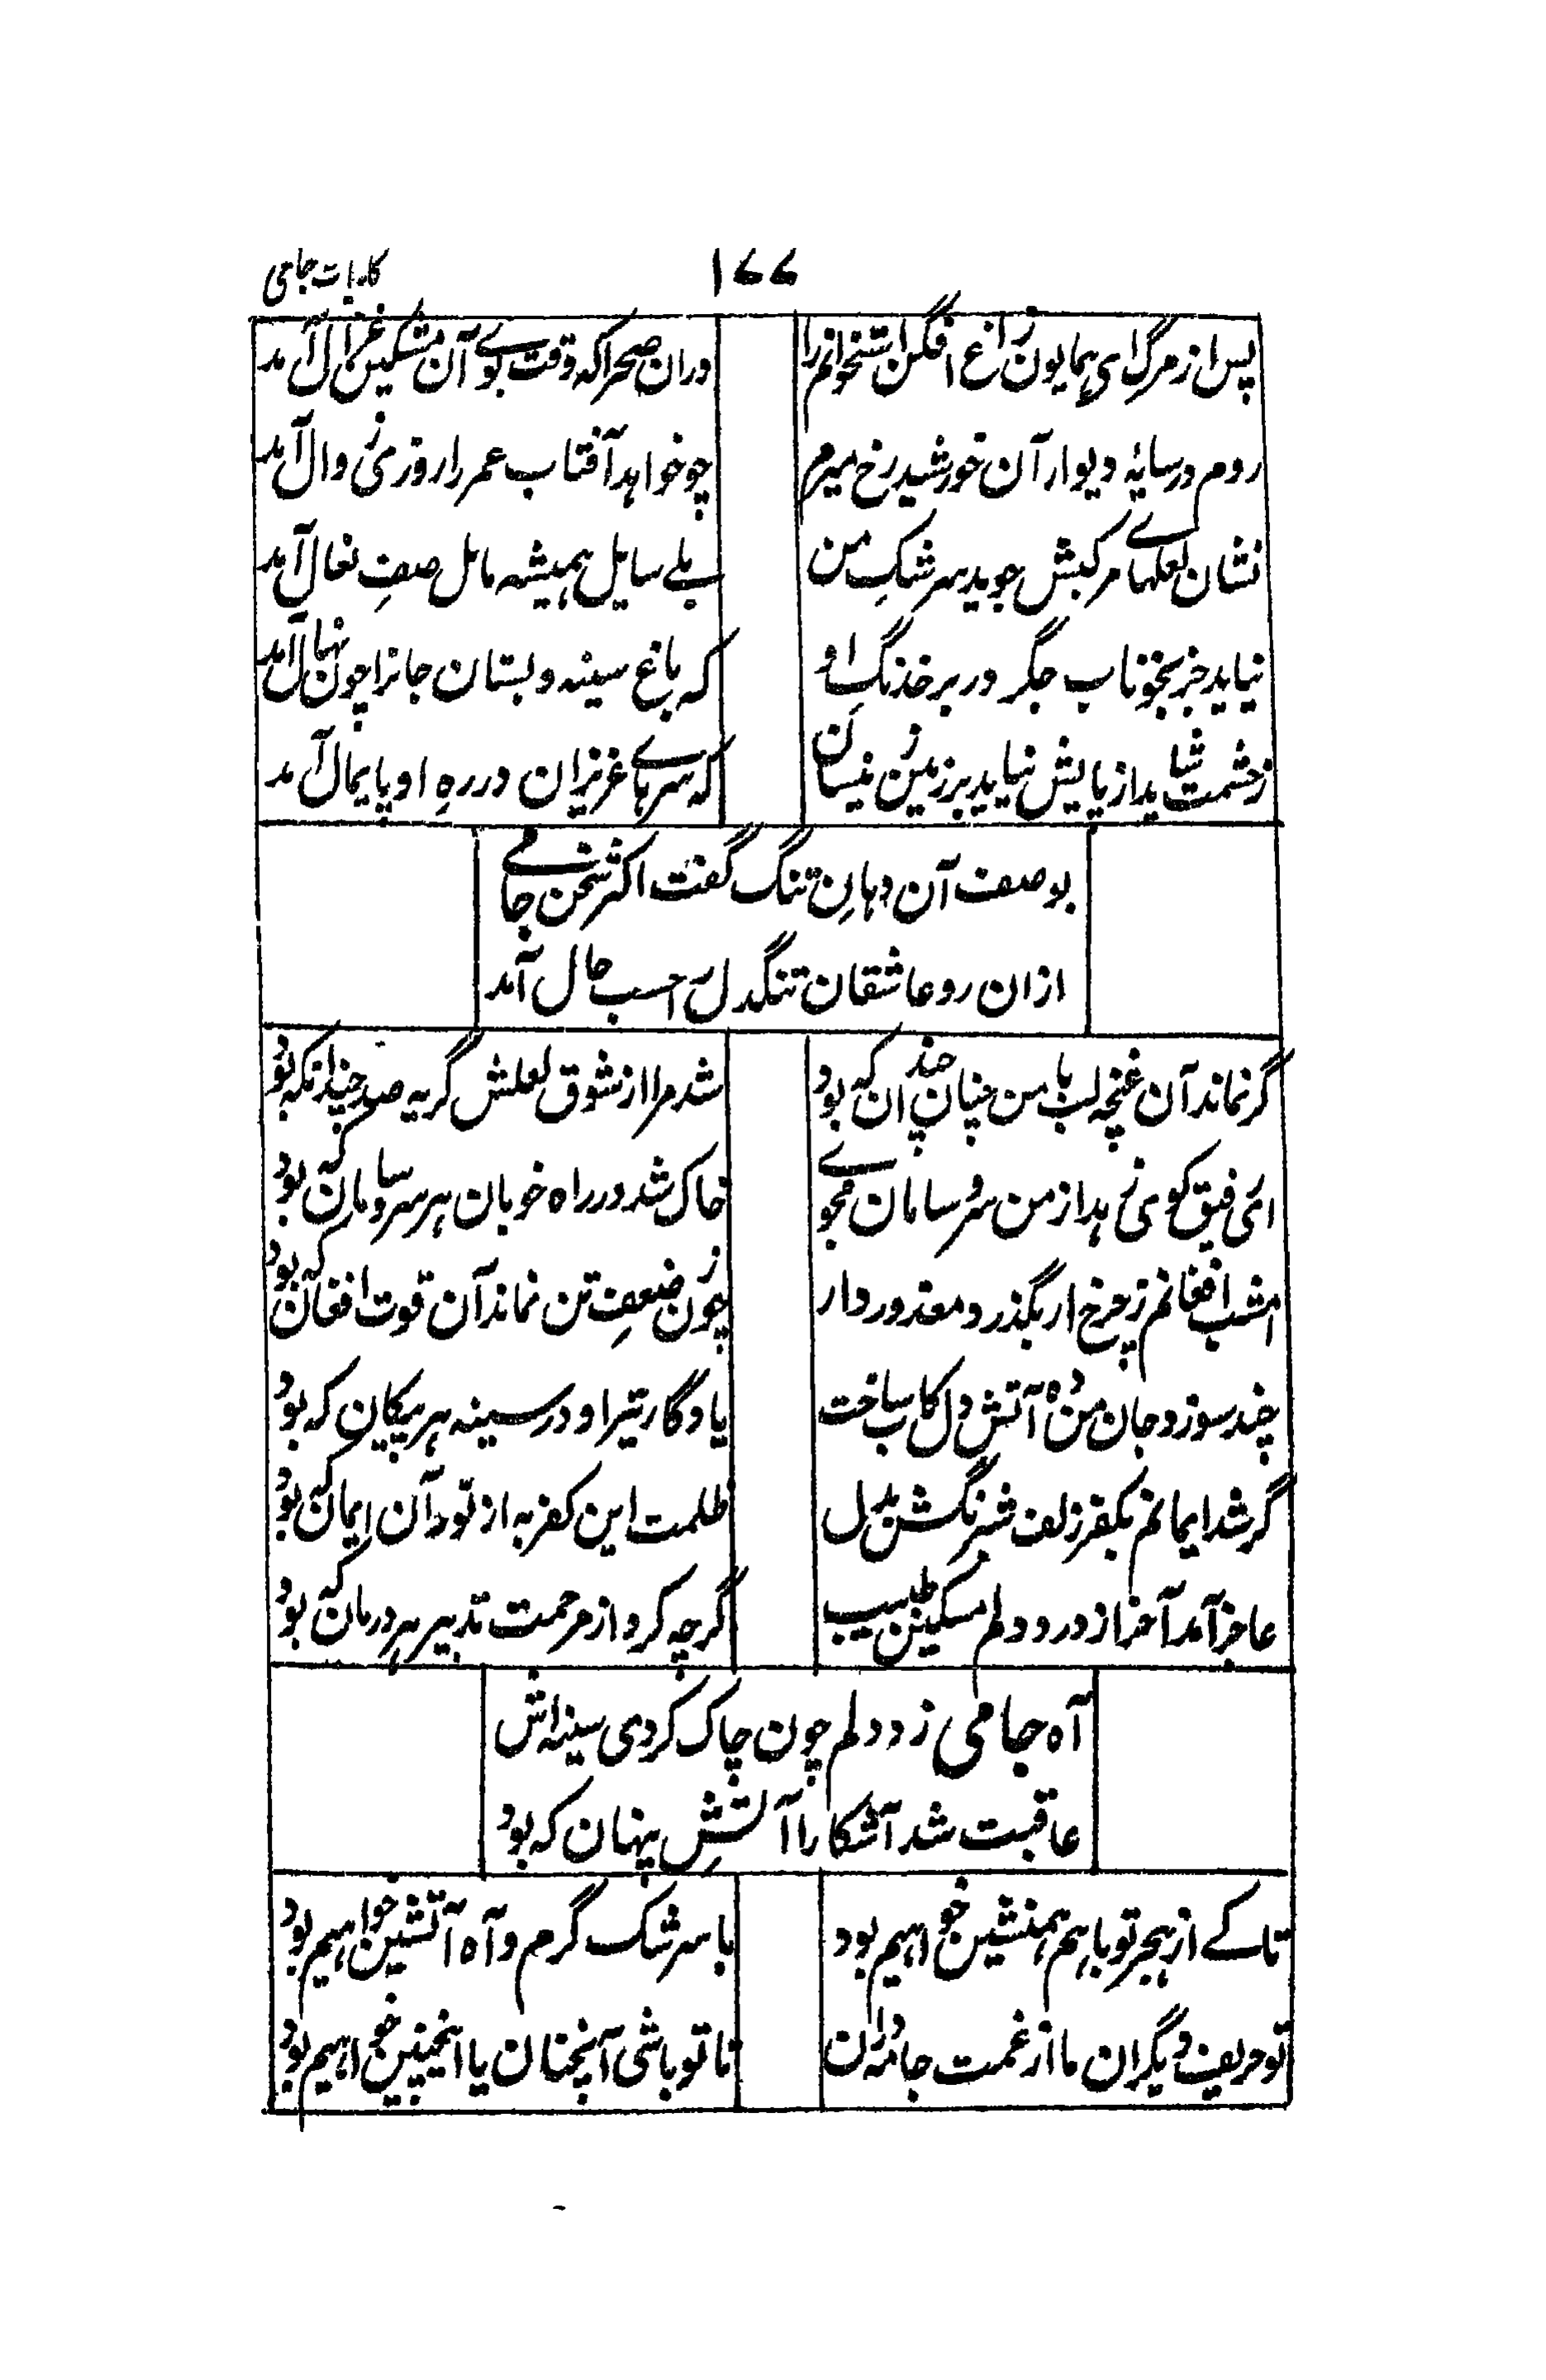 ۱۷۷
کلیات جامی
پس از مرگ ای همایون زاغ افگن استخوانم را
دران صحرا که وقت بوے آن مشکین غزال آمد
روم در سایۂ دیوار آن خورشید رخ میرم
چو خواهد آفتاب عمر را روزی زوال آمد
نشان لعلهاے مرکبش جوید سرشکِ من
بلے سایل همیشه مائل صفِ نعال آمد
نیاید جز بخوناب جگر در بر خدنگ او
که باغ سینه و بستان جانرا چون نهال آمد
ز حشمت شاید از پایش نیاید بر زمین زینسان
که سرهاے عزیزان در رهِ او پایمال آمد
بوصف آن دهانِ تنگ گفت اکثر سخن جامے
ازان رو عاشقان تنگدل را حسب حال آمد
گر نماند آن غنچه لب با من چنان خندان که بود
شد مرا از شوق لعلش گریه صد چندانکه بود
ای رفیق کوی زهد از من سر و سامان مجوے
خاک شد در راه خوبان هر سر و سامان که بود
امشب افغانم ز چرخ ار بگذرد معذور دار
چون ز ضعفِ تن نماند آن قوت افغان که بود
چند سوزد جان من ده آتشِ دل کاب ساخت
یادگار تیر او در سینه هر پیکان که بود
گر شد ایمانم بکفر زلف شبرنگش بدل
ظلمت این کفر به از نور آن ایمان که بود
عاجز آمد آخر از درد دلم مسکین طبیب
گرچه کرد از مرحمت تدبیر هر درمان که بود
آه جامی زد دلم چون چاک کردی سینه اش
عاقبت شد آشکارا آتشِ پنهان که بود
تاکے از هجر تو با هم همنشین خواهیم بود
با سرشک گرم و آه آتشین خواهیم بود
تو حریف دیگران ما از غمت جامه دران
تا تو باشی آنچنان یا اینچنین خواهیم بود